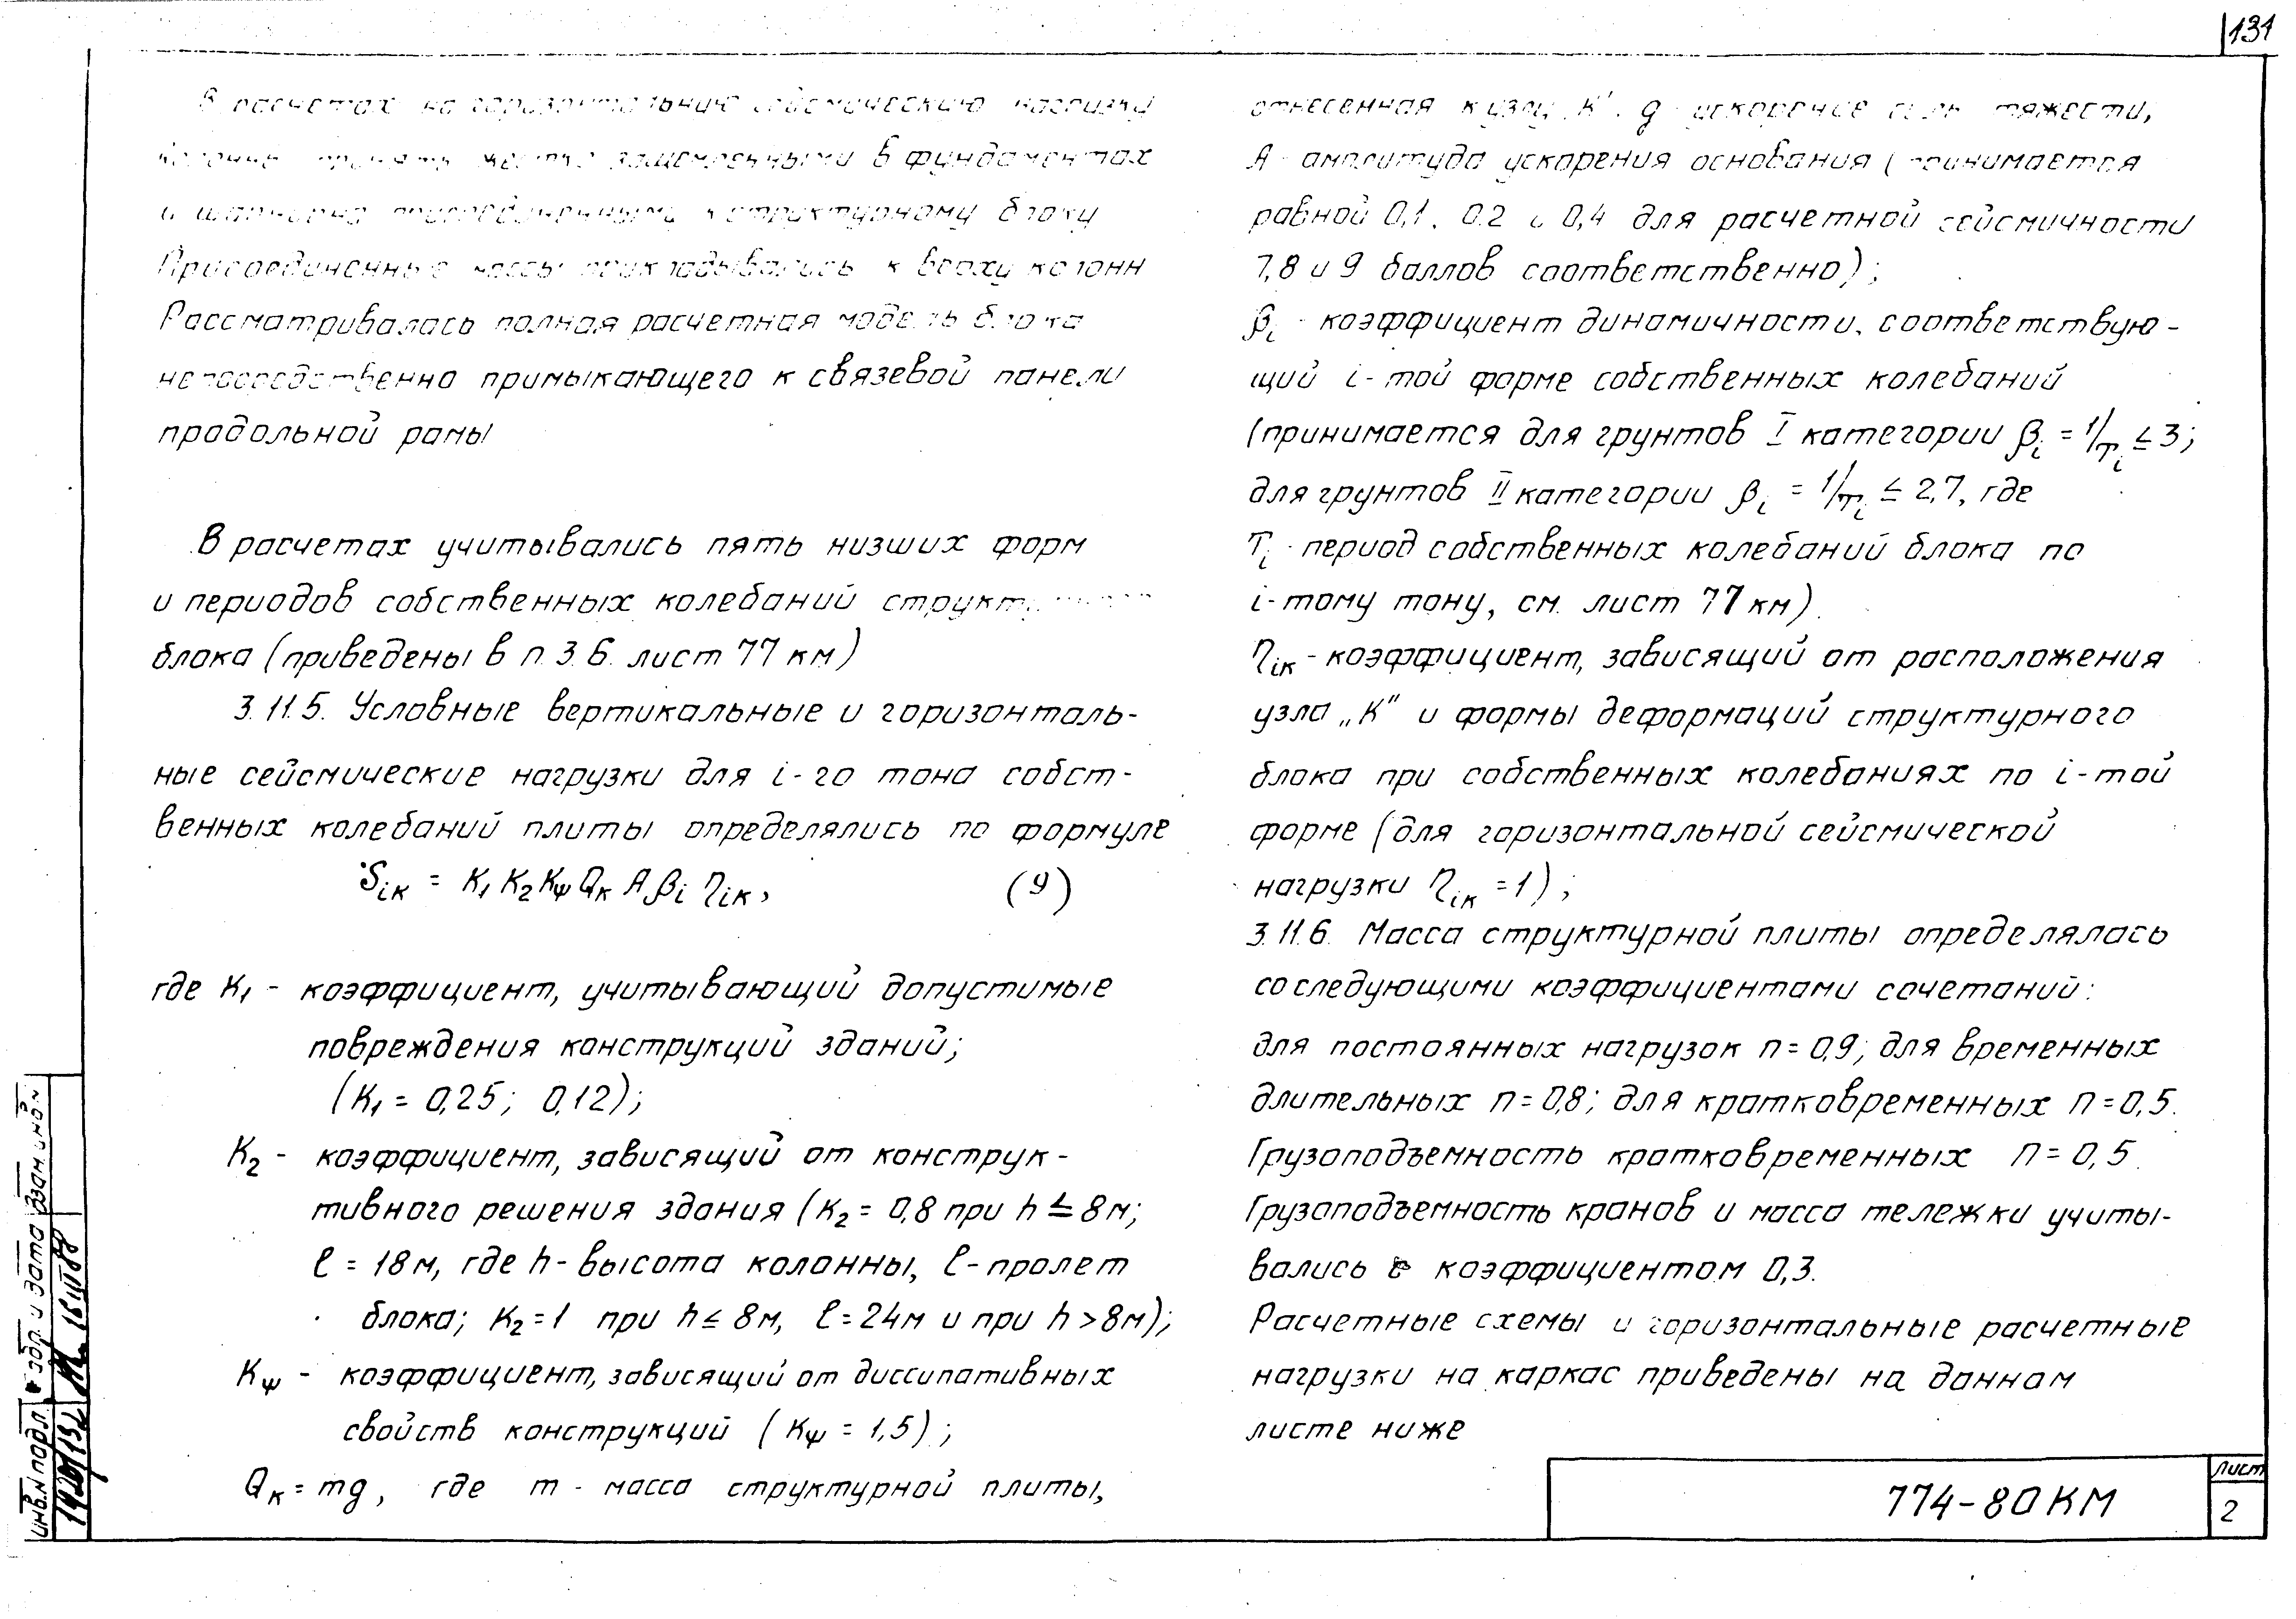 131
В расчетах на горизонтальную сейсмическую нагрузку
колонны принять жестко защемленными в фундаментах
и шарнирно присоединенными к структурному блоку
Присоединенные массы прикладывались к верху колонн
Рассматривалась полная расчетная модель блока
непосредственно примыкающего к связевой панели
продольной рамы
В расчетах учитывались пять низших форм
и периодов собственных колебаний
блока (приведены в п. 3.6. лист 77 км)
3.11.5. Условные вертикальные и горизонталь-
ные сейсмические нагрузки для i-го тона собст-
венных колебаний плиты определялись по формуле
Sік = К₁ К₂ Кψ Qк А βi ηік, (9)
где К₁ - коэффициент, учитывающий допустимые
повреждения конструкций зданий;
(К₁ = 0,25; 0,12);
К₂ - коэффициент, зависящий от конструк-
тивного решения здания (К₂ = 0,8 при h ≤ 8 м;
ℓ = 18 м, где h - высота колонны, ℓ - пролет
блока; К₂ = 1 при h ≤ 8 м, ℓ = 24 м и при h > 8 м);
Кψ - коэффициент, зависящий от диссипативных
свойств конструкций (Кψ = 1,5);
Qк = mg, где m - масса структурной плиты,
отнесенная к узлу „К". g - ускорение силы тяжести,
А - амплитуда ускорения основания (принимается
равной 0,1. 0.2 и 0,4 для расчетной сейсмичности
7,8 и 9 баллов соответственно);
βi - коэффициент динамичности, соответствую-
щий i-той форме собственных колебаний
(принимается для грунтов I категории βi = 1/Ti ≤ 3;
для грунтов II категории βi = 1/Ti ≤ 2,7, где
Ti - период собственных колебаний блока по
i-тому тону, см. лист 77 км).
ηік - коэффициент, зависящий от расположения
узла „К" и формы деформаций структурного
блока при собственных колебаниях по i-той
форме (для горизонтальной сейсмической
нагрузки ηік = 1);
3.11.6. Масса структурной плиты определялась
со следующими коэффициентами сочетаний:
для постоянных нагрузок n = 0,9; для временных
длительных n = 0,8; для кратковременных n = 0,5.
Грузоподъемность кратковременных n = 0,5.
Грузоподъемность кранов и масса тележки учиты-
вались с коэффициентом 0,3.
Расчетные схемы и горизонтальные расчетные
нагрузки на каркас приведены на данном
листе ниже
774-80КМ
лист
2
инв. N подл.
подр. и дата
взам. инв. N